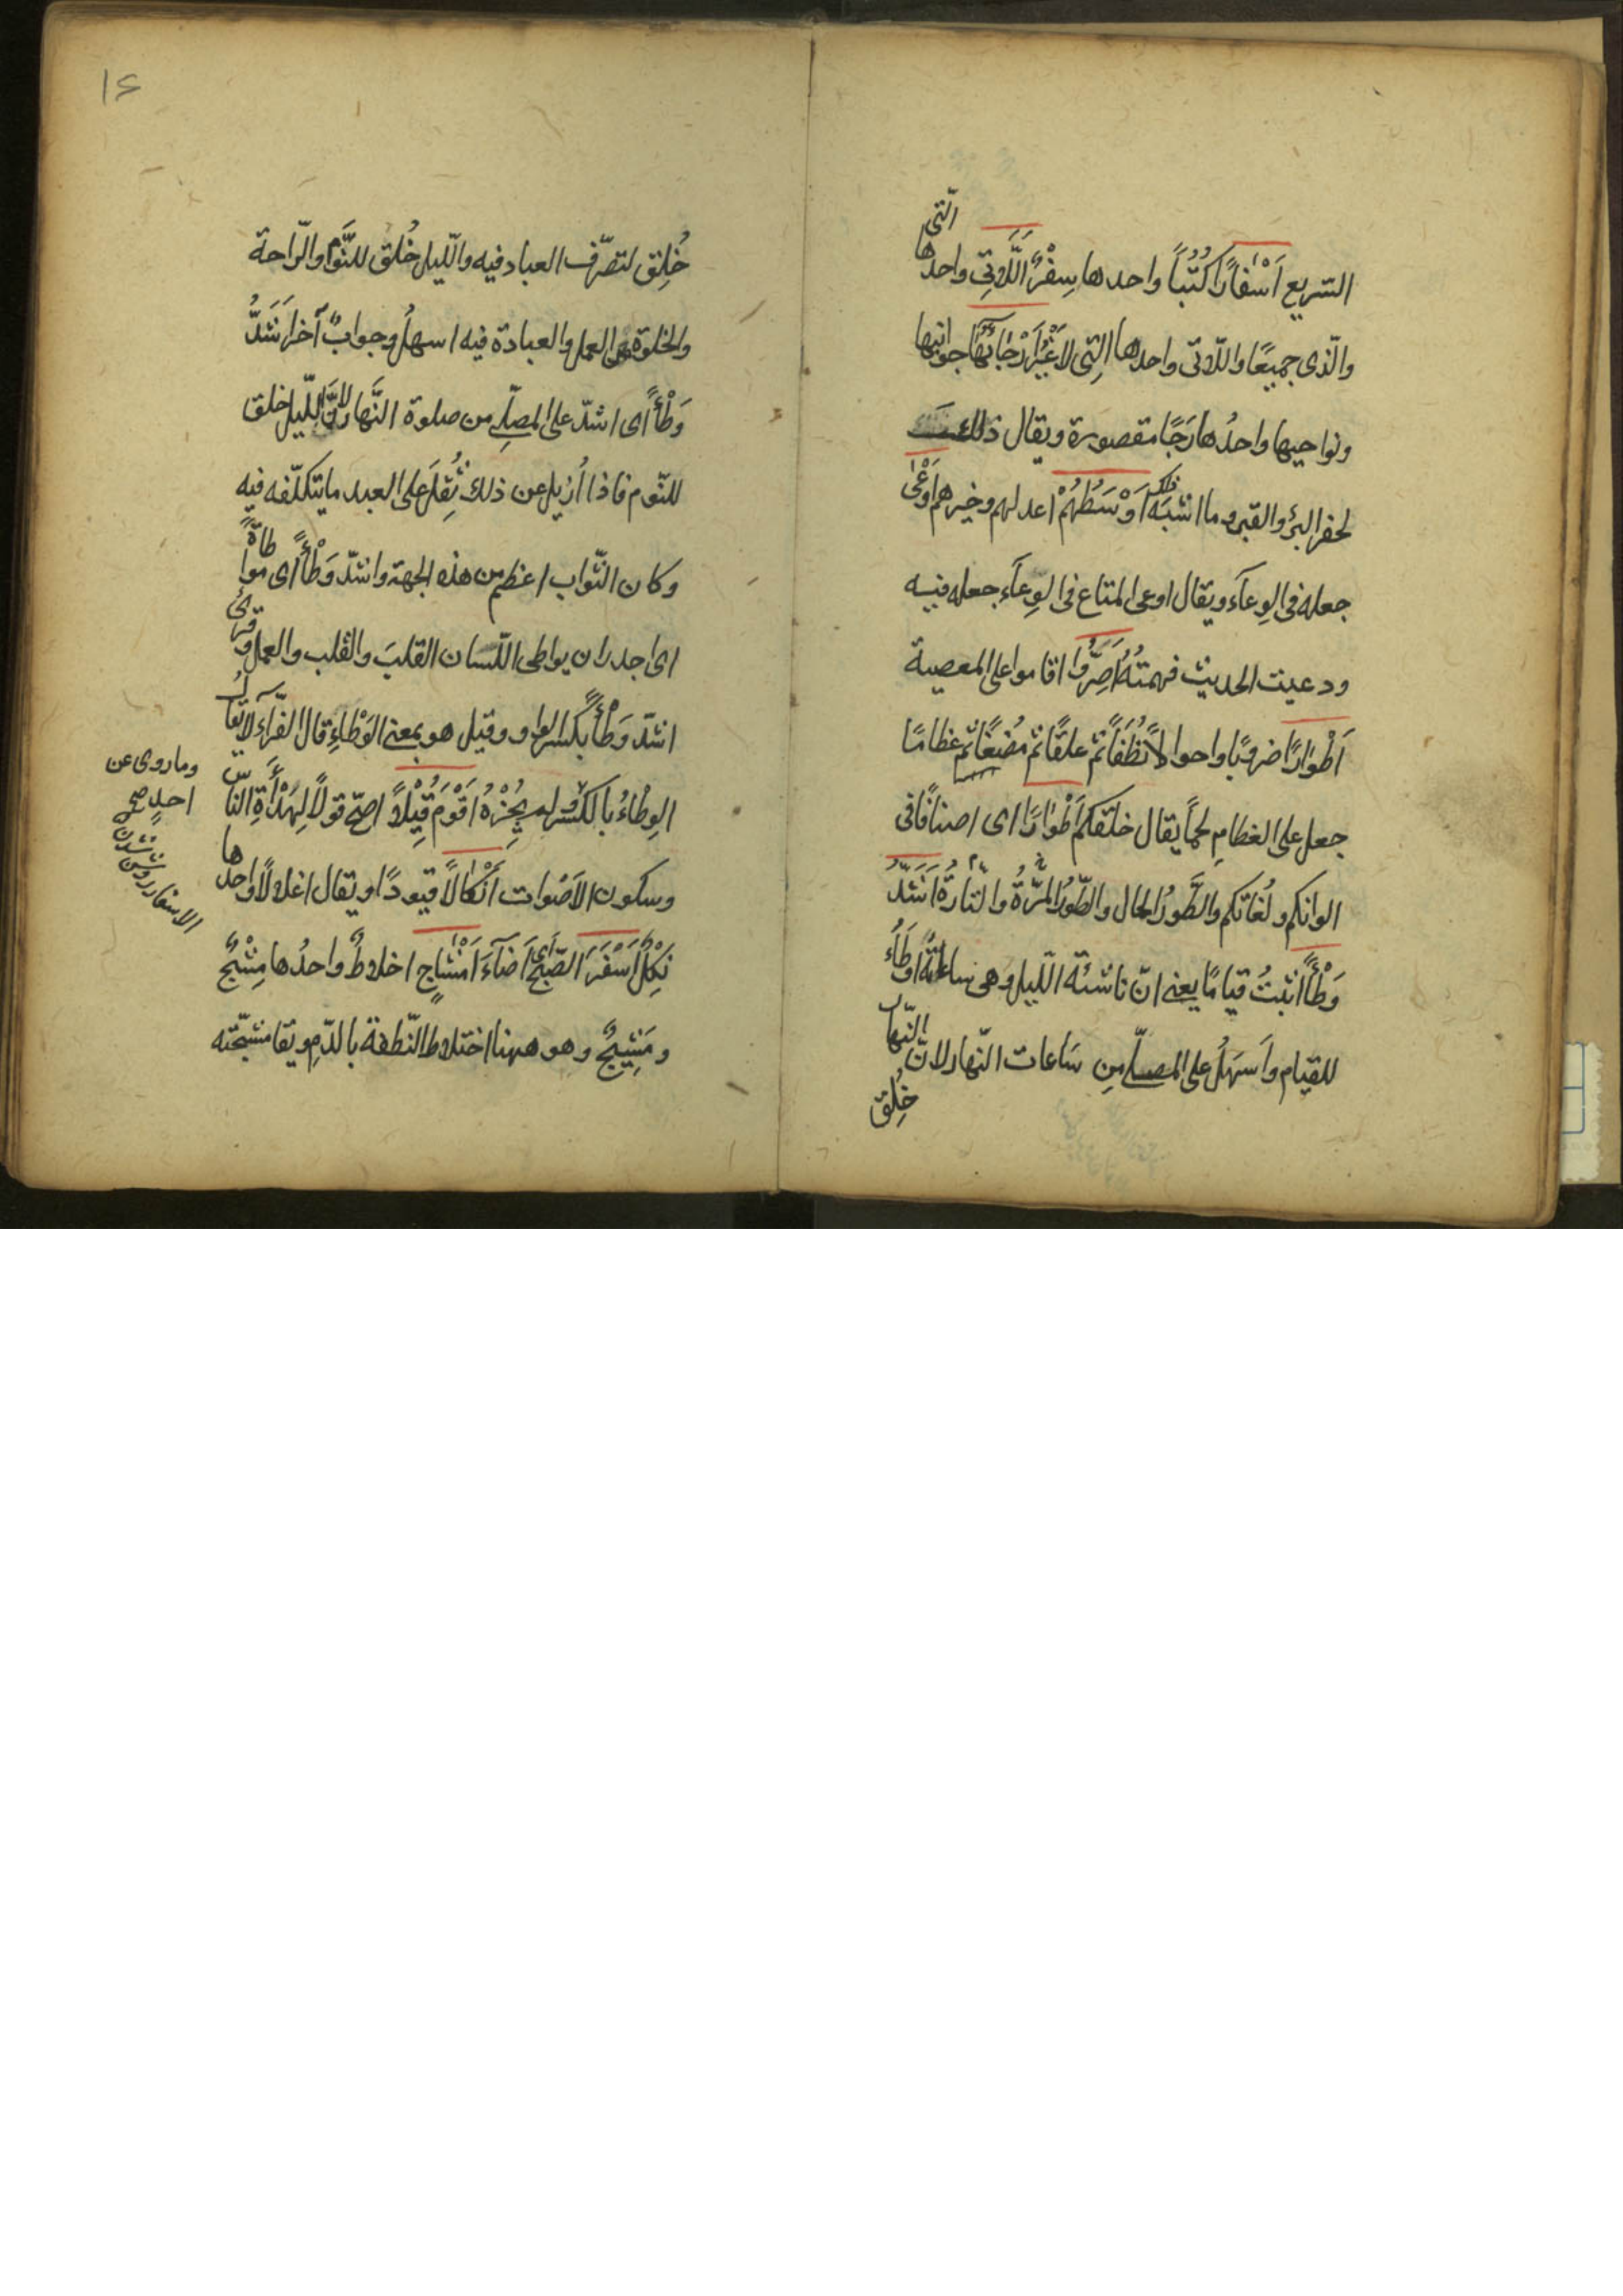 السّريع اَسْفارًا كُتُبًا واحدها سِفْرٌ اَللّاتِى واحدها الّتى
والّذى جميعًا واللّاتى واحدها الّتِى لاغَيْرُ اَرْجَائِهَا جوانبها
ونواحيها واحدُها رَجًا مقصورة ويقال ذلك
لحفر البئر والقبر وما اشبَه ذلك اَوْسَطُهُمْ اعدلهم وخيرهم اَوْعٰى
جعله فى الوِعآء ويقال اوعى المتاع فى الوِعآء جعله فيه
ووعيت الحديث فهمتُهُ اَصَرُّوا اقاموا على المعصية
اَطْوارًا ضروبًا واحوالاً نُطَفًا ثمّ علقًا ثمّ مُضَغًا ثمّ عظامًا
جعل على العظامِ لحمًا يقال خلقكم اَطْوارًا اى اصنافًا فى
الوانكم ولُغاتكم والطَّورُ الحال والطّورُ المَرَّةُ والتّارَةُ اَشَدُّ
وَطْأً اثبتُ قيامًا يعنى انّ ناشئة اللّيل وهى ساعاتُهُ اوطَأُ
للقيام وأسهَلُ على المصلّى مِن سَاعات النّهار لانّ النّهار
خُلِق
١٤
خُلِق لتصرّف العباد فيه واللّيل خُلق للنَّوم والرّاحة
والخلوة من العمل والعبادة فيه اسهلُ وجوابٌ آخر اَشَدُّ
وَطْأً اى اشدّ على المصلّى من صلوة النَّهار لانَّ اللّيل خلق
للنّوم فاذا اُزيل عن ذلك ثَقُلَ على العبد ما يتكلّفه فيه
وكان الثّواب اعظم من هذه الجهة واشدّ وَطْأً اى مواطأةً
اى اجدر ان يواطى اللّسان القلبَ والقلب والعمل وقرئ
اشدّ وِطَأً بكسر الواو وقيل هو بمعنى الوَطْاءِ قال الفرّآء لا يقال
الوِطْاءُ بالكسر ولم يُجِزْهُ اَقْوَمُ قِيْلاً اصحّ قولاً لِهَدْأَةِ النّاس
وسكون الاَصْوات اَنْكَالاً قيودًا ويقال اغلالاً واحدها
نِكْلٌ اَسْفَرَ الصّبحُ اى اَضآءَ اَمْشَاجٍ اخلاطٌ واحدُها مِشْجٌ
ومَشِيجٌ وهو ههنا اختلاط النّطفة بالدّمِ ويقا مشجته
وماروى عن
احدٍ
الاسفار روشن شدن